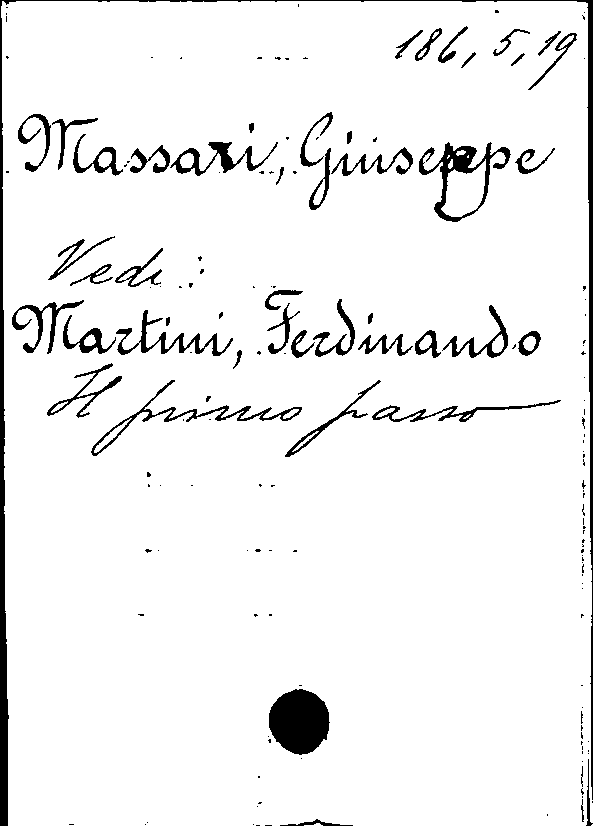 186, 5, 19
Massari, Giuseppe
Vedi:
Martini, Ferdinando
Il primo passo